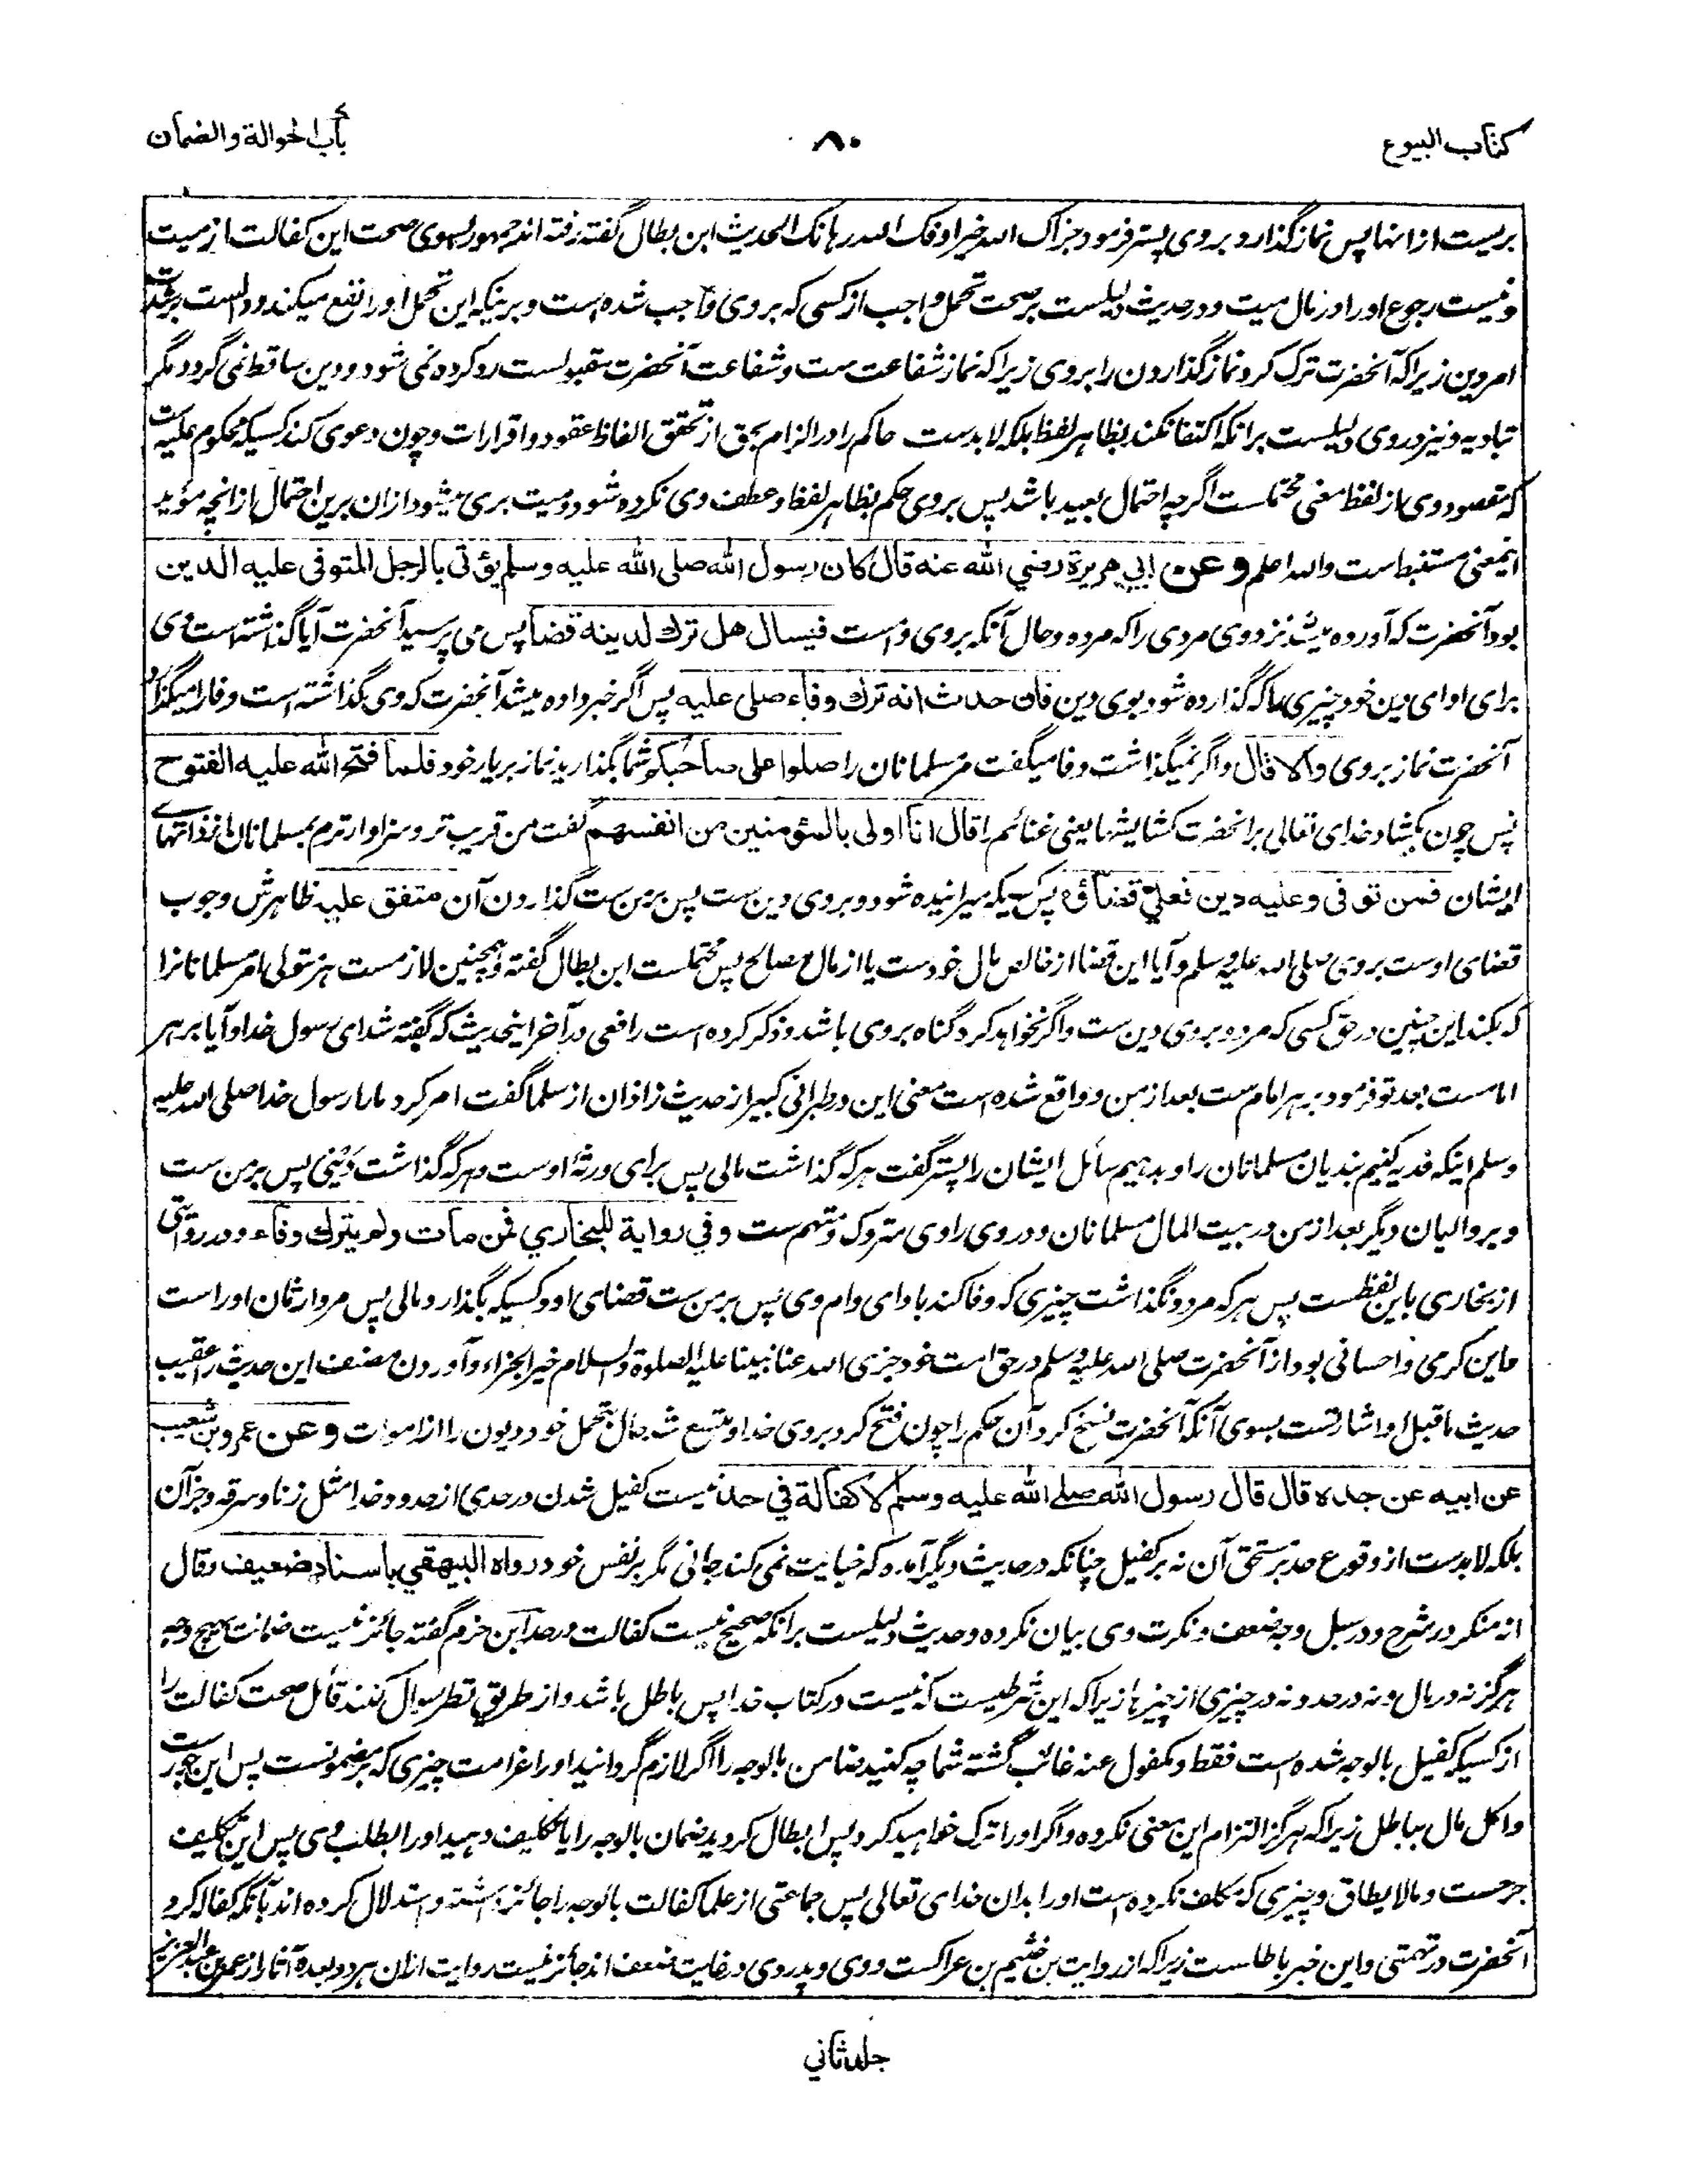 کتاب البیوع
۸۰
باب الحوالة والضمان
بریست ازانها پس نماز گذارد بروی پستر فرمود جزاک الله خیرا وفک الله رهانک الحدیث ابن بطال گفته رفته اند جمهور بسوی صحت این کفالت از میت
ونیست رجوع اورا در مال میت ودر حدیث دلیلست بر صحت تحمل واجب از کسی که بروی واجب شده است وبرینکه این تحمل اورا نفع میکند ودلیلست بر شدت
امر دین زیراکه آنحضرت ترک کرد نماز گذاردن را بروی زیراکه نماز شفاعت ست وشفاعت آنحضرت مقبولست رد کرده نمی شود ودین ساقط نمی گردد مگر
بتادیه ونیز دروی دلیلست برانکه اکتفا نکند بظاهر لفظ بلکه لابدست حاکم را در الزام بحق از تحقق الفاظ عقود واقرارات وچون دعوی کند کسیکه محکوم علیه است
که مقصود وی از لفظ معنی محتملست اگرچه احتمال بعید باشد پس بروی حکم بظاهر لفظ وعطف وی نکرده شود ومیت بری میشود ازان برین احتمال ازانچه مؤید
اینمعنی مستنبط است والله اعلم وعن ابي هريرة رضي الله عنه قال كان رسول الله صلى الله عليه وسلم يؤتى بالرجل المتوفى عليه الدين
بود آنحضرت که آورده میشد نزد وی مردی را که مرده وحال آنکه بروی وام است فيسال هل ترك لدينه قضا پس می پرسید آنحضرت آیا گذاشته است وی
برای ادای دین خود چیزی را که گذارده شود بوی دین فان حدث انه ترك وفاء صلى عليه پس اگر خبر داده میشد آنحضرت که وی بگذاشته است وفا را میگذارد
آنحضرت نماز بروی والا قال واگر نمیگذاشت وفا میگفت مر مسلمانان را صلوا على صاحبكم شما بگذارید نماز بریار خود فلما فتح الله عليه الفتوح
پس چون بکشاد خدای تعالی بر آنحضرت کشایشها یعنی غنائم را قال انا اولى بالمؤمنين من انفسهم گفت من قریب تر وسزاوارترم بمسلمانان از ذاتهای
ایشان فمن توفى وعليه دين فعلي قضاؤه پس کسیکه میرانیده شود وبروی دین ست پس بر من ست گذاردن آن متفق عليه ظاهرش وجوب
قضای اوست بروی صلی الله علیه وسلم وآیا این قضا از خالص مال خودست یا از مال مصالح پس محتملست ابن بطال گفته وهمچنین لازمست هر متولی امر مسلمانانرا
که بکند این چنین در حق کسی که مرد وبروی دین ست واگر نخواهد کرد گناه بروی باشد وذکر کرده است رافعی در آخر اینحدیث که گفته شد ای رسول خدا وآیا بر هر
امامست بعد تو فرمود بر هر امام ست بعد از من وواقع شده است معنی این در طبرانی کبیر از حدیث زاذان از سلمان گفت امر کرد مارا رسول خدا صلی الله علیه
وسلم اینکه فدیه کنیم بندیان مسلمانان را وبدهیم سائل ایشان را پستر گفت هر که گذاشت مالی پس برای ورثهٔ اوست وهر که گذاشت دینی پس بر من ست
وبر والیان دیگر بعد از من در بیت المال مسلمانان ودروی راوی متروک ومتهم ست وفي رواية للبخاري فمن مات ولم يترك وفاء ودر روایتی
از بخاری باین لفظست پس هر که مرد ونگذاشت چیزی که وفا کند بادای وام وی پس بر من ست قضای او وکسیکه بگذارد مالی پس مر وارثان اوراست
واین کرمی واحسانی بود از آنحضرت صلی الله علیه وسلم در حق امت خود جزی الله عنا نبینا علیه الصلوة والسلام خیر الجزاء وآوردن مصنف این حدیث را عقیب
حدیث ماقبل او اشارتست بسوی آنکه آنحضرت نسخ کرد آن حکم را چون فتح کرد بروی خدا ومتسع شد مال تحمل خود دیون را از اموات وعن عمرو بن شعيب
عن ابيه عن جده قال قال رسول الله صلى الله عليه وسلم لا كفالة في حد نیست کفیل شدن در حدی از حدود خدا مثل زنا وسرقه وجز آن
بلکه لابدست از وقوع حد بر مستحق آن نه بر کفیل چنانکه در حدیث دیگر آمده که خیانت نمی کند جانی مگر بر نفس خود رواه البيهقي باسناد ضعيف وقال
انه منکر در شرح ودر سبل وجه ضعف ونکرت وی بیان نکرده وحدیث دلیلست برانکه صحیح نیست کفالت در حد ابن حزم گفته جائز نیست ضمانت بهیچ وجه
هرگز نه در مال ونه در حد ونه در چیزی از چیزها زیراکه این شرطیست که نیست در کتاب خدا پس باطل باشد واز طریق نظر سوال کنند قائل صحت کفالت را
از کسیکه کفیل بالوجه شده است فقط ومکفول عنه غائب گشته شما چه کنید ضامن بالوجه را اگر لازم گردانید اورا غرامت چیزی که بر مضمونست پس این جورست
واکل مال بباطل زیراکه هرگز التزام این معنی نکرده واگر اورا ترک خواهید کرد پس ابطال کردید ضمان بالوجه را یا تکلیف دهید اورا بطلب وی پس این تکلیف
حرجست ومالایطاق وچیزی که مکلف نکرده است اورا بدان خدای تعالی پس جماعتی از علما کفالت بالوجه را جائز داشته واستدلال کرده اند بآنکه کفاله کرد
آنحضرت در تهمتی واین خبر باطلست زیراکه از روایت بن خثیم بن عراکست ووی وپدر وی در غایت ضعف اند جائز نیست روایت ازان هر دو بعده آثار از عمر بن عبدالعزیز
جلد ثاني